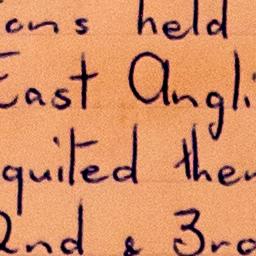 ons held
East Angli
quited them
2nd & 3rd